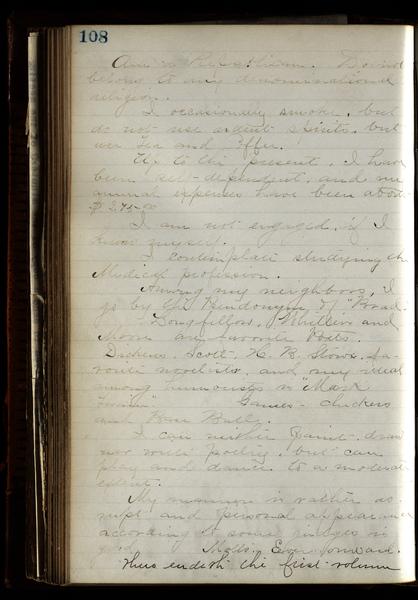 108
Am a Republican. Do not
belong to any denominational
religion.
I occasionally smoke, but
do not use ardent spirits, but
use Tea and Coffee.
Up to the present, I have
been self-dependent, and my
annual expenses have been about
$275.00
I am not engaged, if I
know myself.
I contemplate studying the
Medical profession.
Among my neighbors, I
go by the Pseudonym of "Brad."
Longfellow, Whittier and
Moore are favorite Poets.
Dickens, Scott, H. B. Stowe, fa-
vorite novelists, and my ideal
among humorists is "Mark
Twain". Games - Checkers
and Base Ball.
I can neither Paint, draw
nor write poetry, but can
play and dance to a moderate
extent.
My manner is rather ab-
rupt and personal appearance
according to some judges is
good. Motto, Ever forward.
Thus endeth the first volume